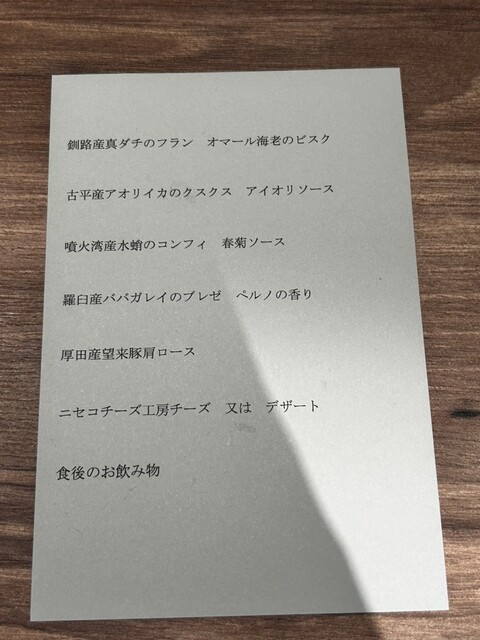 釧路産真ダチのフラン　オマール海老のビスク
古平産アオリイカのクスクス　アイオリソース
噴火湾産水蛸のコンフィ　春菊ソース
羅臼産ババガレイのブレゼ　ペルノの香り
厚田産望来豚肩ロース
ニセコチーズ工房チーズ　又は　デザート
食後のお飲み物